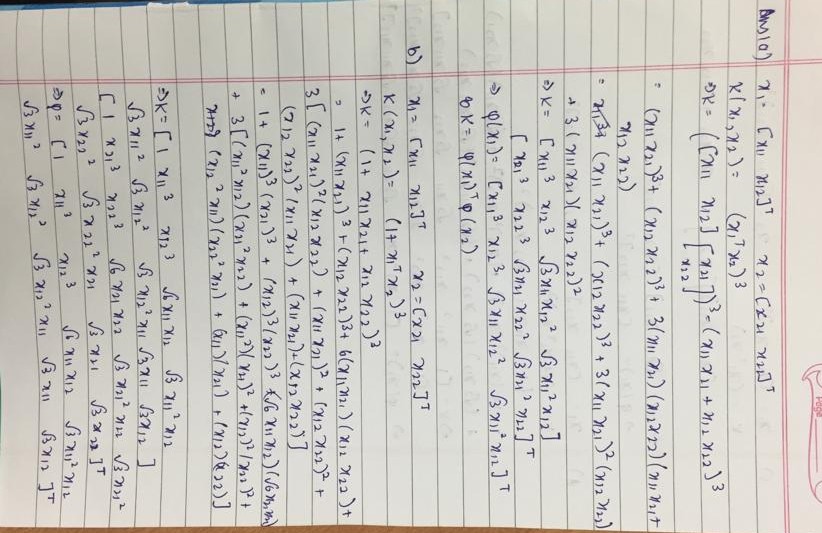 Page
Ans(a) x₁ = [x₁₁ x₁₂]ᵀ x₂ = [x₂₁ x₂₂]ᵀ
K(x₁, x₂) = (x₁ᵀx₂)³
⇒ K = ([x₁₁ x₁₂] [x₂₁ x₂₂])³ = (x₁₁ x₂₁ + x₁₂ x₂₂)³
= (x₁₁ x₂₁)³ + (x₁₂ x₂₂)³ + 3(x₁₁ x₂₁)(x₁₂ x₂₂)(x₁₁ x₂₁ +
x₁₂ x₂₂)
= (x₁₁ x₂₁)³ + (x₁₂ x₂₂)³ + 3(x₁₁ x₂₁)² (x₁₂ x₂₂)
+ 3(x₁₁ x₂₁)(x₁₂ x₂₂)²
⇒ K = [x₁₁³ x₁₂³ √3 x₁₁ x₁₂² √3 x₁₁² x₁₂]
[x₂₁³ x₂₂³ √3 x₂₁ x₂₂² √3 x₂₁² x₂₂]ᵀ
⇒ φ(x₁) = [x₁₁³ x₁₂³ √3 x₁₁ x₁₂² √3 x₁₁² x₁₂]ᵀ
∞ K = φ(x₁)ᵀ φ(x₂)
b) x₁ = [x₁₁ x₁₂]ᵀ x₂ = [x₂₁ x₂₂]ᵀ
K(x₁, x₂) = (1 + x₁ᵀx₂)³
⇒ K = (1 + x₁₁ x₂₁ + x₁₂ x₂₂)³
= 1 + (x₁₁ x₂₁)³ + (x₁₂ x₂₂)³ + 6(x₁₁ x₂₁)(x₁₂ x₂₂) +
3[(x₁₁ x₂₁)² (x₁₂ x₂₂) + (x₁₁ x₂₁)² + (x₁₂ x₂₂)² +
(x₁₂ x₂₂)² (x₁₁ x₂₁) + (x₁₁ x₂₁) + (x₁₂ x₂₂)]
= 1 + (x₁₁)³ (x₂₁)³ + (x₁₂)³ (x₂₂)³ + (√6 x₁₁ x₁₂)(√6 x₂₁ x₂₂)
+ 3[(x₁₁² x₁₂)(x₂₁² x₂₂) + (x₁₁²)(x₂₁)² + (x₁₂)² (x₂₂)² +
(x₁₂² x₁₁)(x₂₂² x₂₁) + (x₁₁)(x₂₁) + (x₁₂)(x₂₂)]
⇒ K = [1 x₁₁³ x₁₂³ √6 x₁₁ x₁₂ √3 x₁₁² x₁₂
√3 x₁₁² √3 x₁₂² √3 x₁₂² x₁₁ √3 x₁₁ √3 x₁₂]
[1 x₂₁³ x₂₂³ √6 x₂₁ x₂₂ √3 x₂₁² x₂₂ √3 x₂₁²
√3 x₂₂² √3 x₂₂² x₂₁ √3 x₂₁ √3 x₂₂]ᵀ
⇒ φ = [1 x₁₁³ x₁₂³ √6 x₁₁ x₁₂ √3 x₁₁² x₁₂
√3 x₁₁² √3 x₁₂² √3 x₁₂² x₁₁ √3 x₁₁ √3 x₁₂]ᵀ